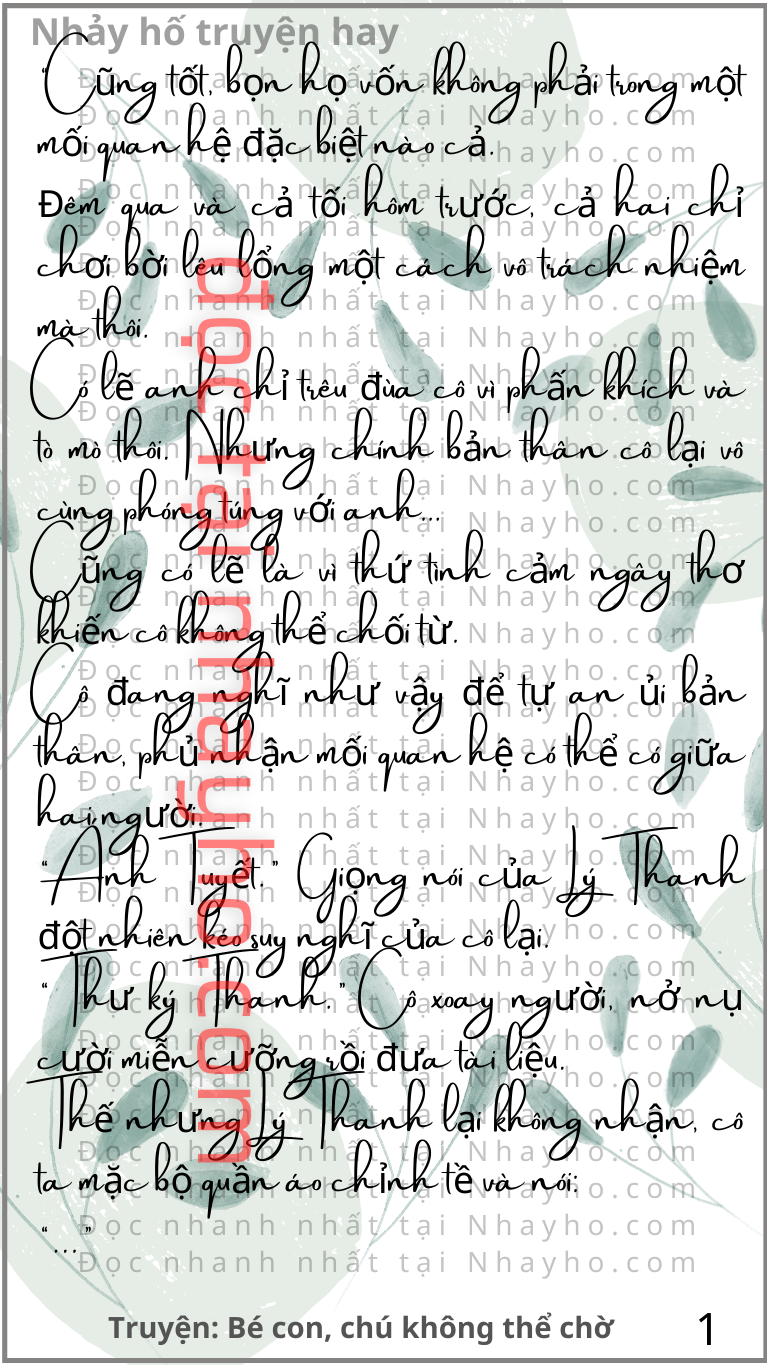 Nhảy hố truyện hay
“Cũng tốt, bọn họ vốn không phải trong một
mối quan hệ đặc biệt nào cả.
Đêm qua và cả tối hôm trước, cả hai chỉ
chơi bời lêu lổng một cách vô trách nhiệm
mà thôi.
Có lẽ anh chỉ trêu đùa cô vì phấn khích và
tò mò thôi. Nhưng chính bản thân cô lại vô
cùng phóng túng với anh...
Cũng có lẽ là vì thứ tình cảm ngây thơ
khiến cô không thể chối từ.
Cô đang nghĩ như vậy để tự an ủi bản
thân, phủ nhận mối quan hệ có thể có giữa
hai người.
“Anh Tuyết.” Giọng nói của Lý Thanh
đột nhiên kéo suy nghĩ của cô lại.
“Thư ký Thanh.” Cô xoay người, nở nụ
cười miễn cưỡng rồi đưa tài liệu.
Thế nhưng Lý Thanh lại không nhận, cô
ta mặc bộ quần áo chỉnh tề và nói:
“...”
Đọc nhanh nhất tại Nhayho.com
đọc tại nhayho.com
Truyện: Bé con, chú không thể chờ
1